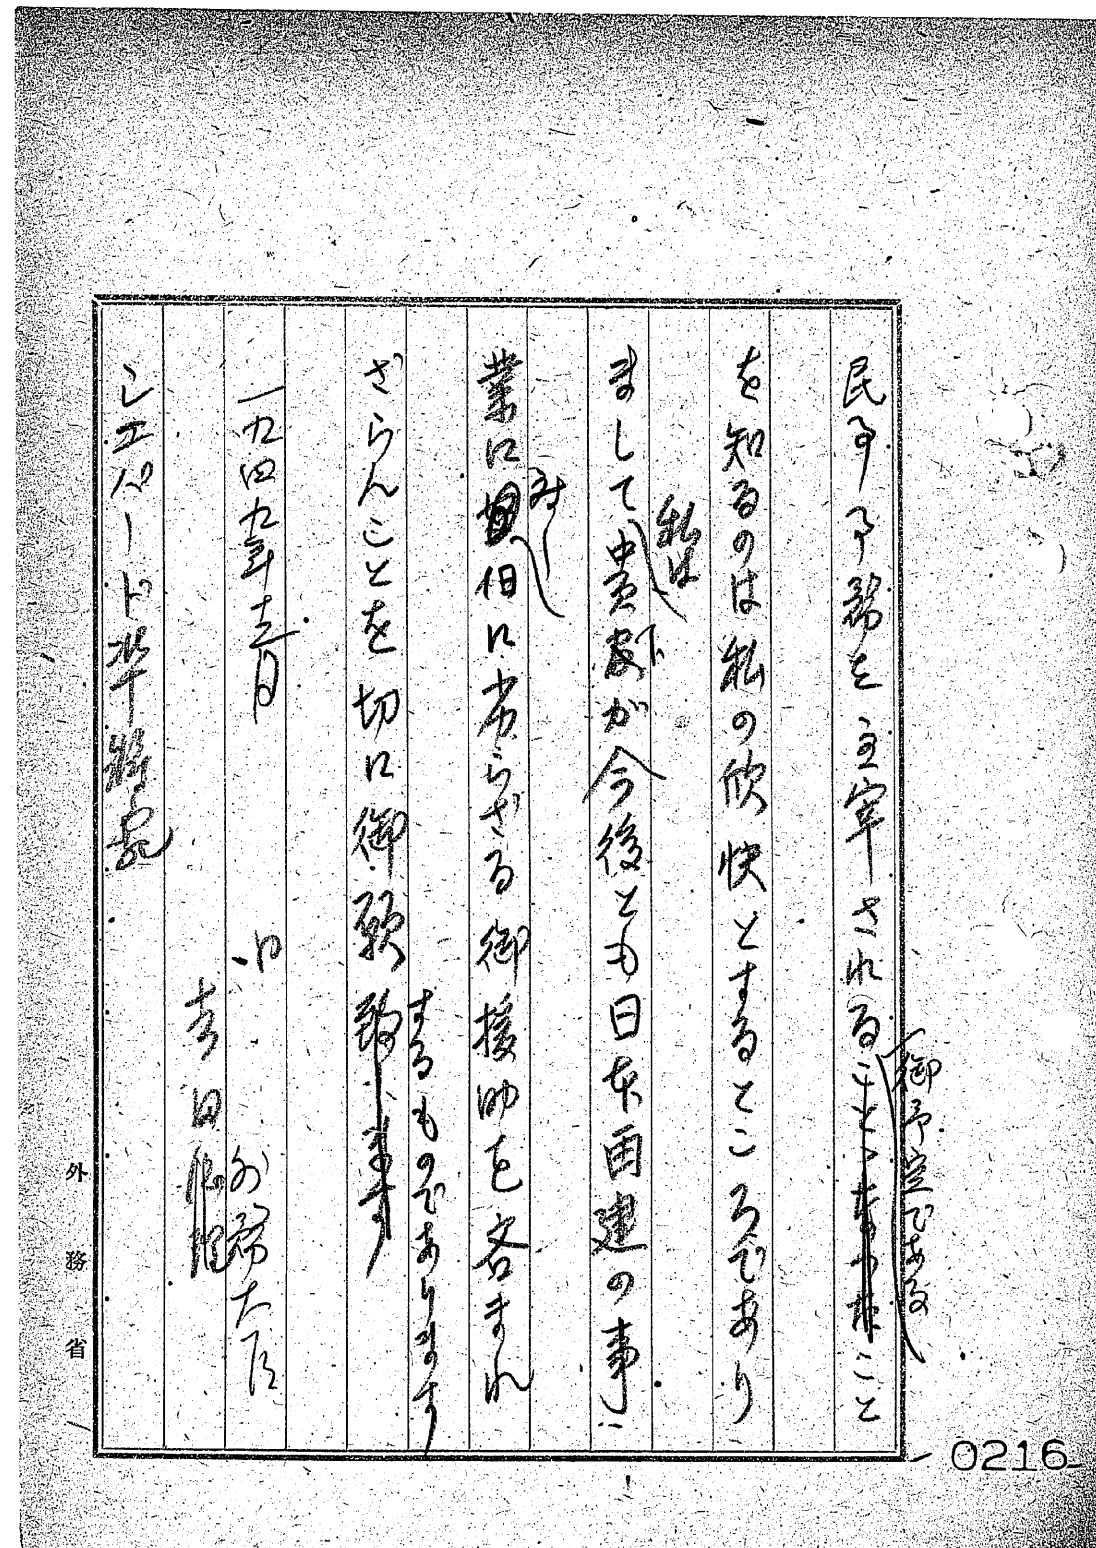 民事事務を主宰される御予定であること
を知るのは私の欣快とするところであり
まして私は貴下が今後とも日本再建の事
業に対し旧に劣らざる御援助を吝まれ
ざらんことを切に御願するものであります
一九四九年 月 日
外務大臣
吉田
シエパード准将宛
外務省
0216